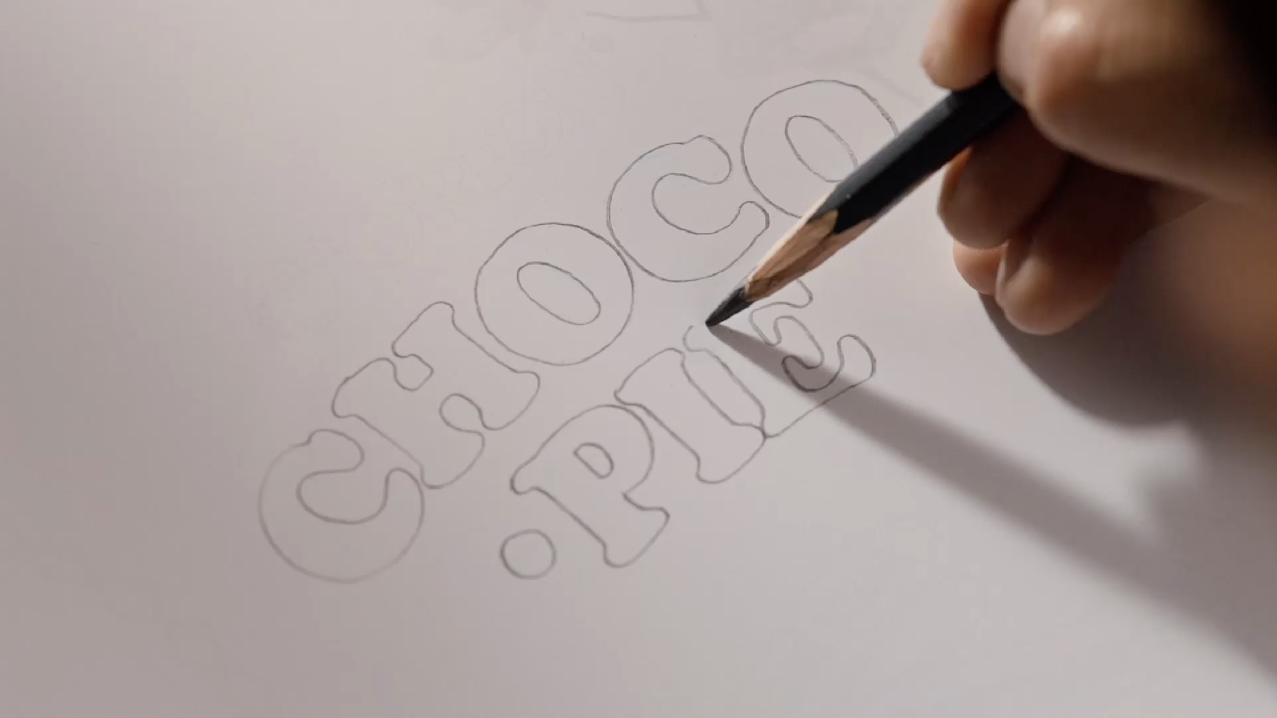 CHOCO
·PIE